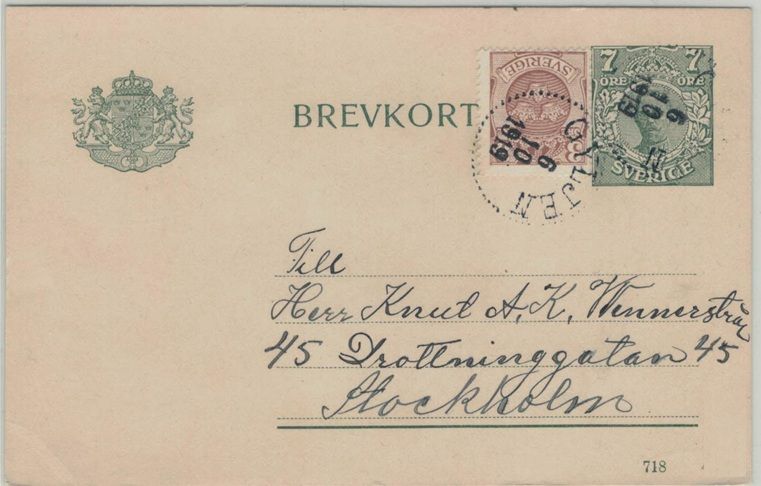 7 7
ÖRE ÖRE
SVERIGE
SVERIGE
3
BREVKORT
GYLJEN
6
10
1919
6
10
1919
Till
Herr Knut A. K. Wennerström
45 Drottninggatan 45
Stockholm
718